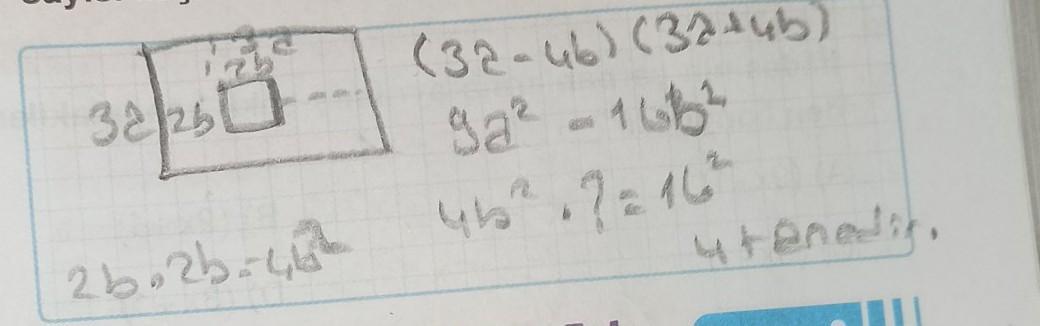 3a
2b
3a
2b
(3a-4b)(3a+4b)
9a² - 16b²
4b² . ? = 16²
4 tanedir.
2b . 2b = 4b²